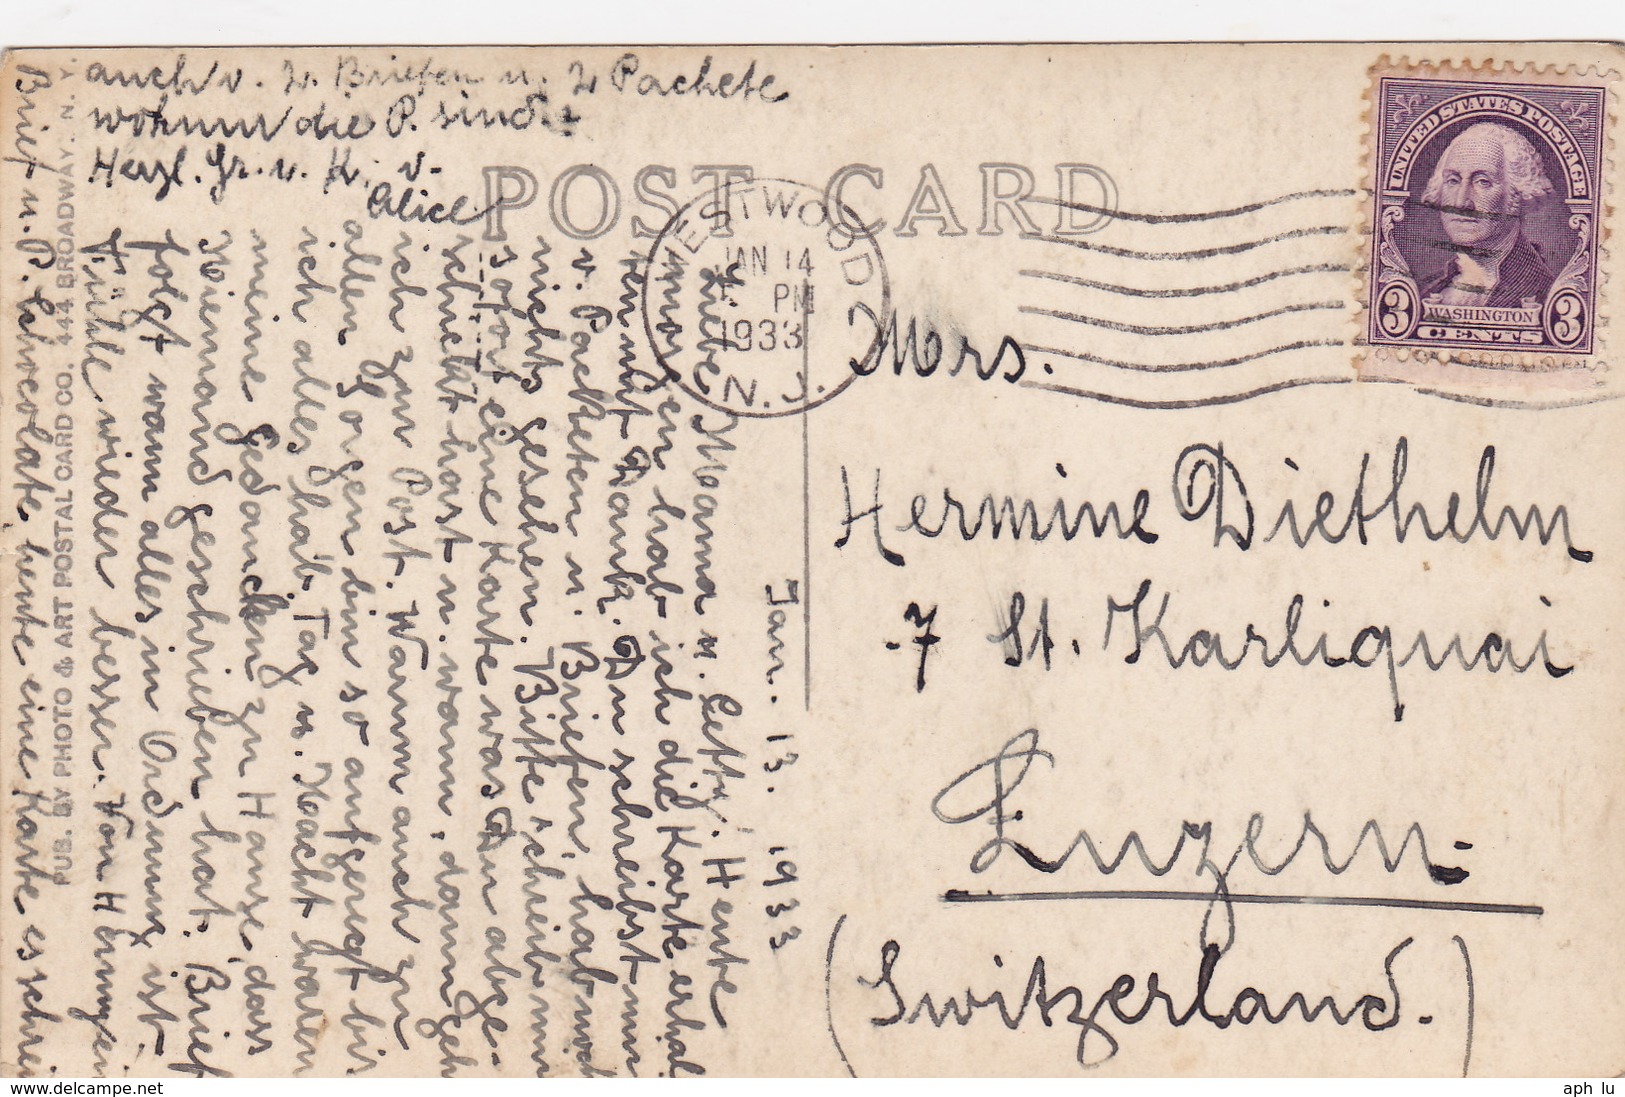 POST CARD
WESTWOOD
JAN 14
PM
1933
N.J.
UNITED STATES POSTAGE
3 WASHINGTON 3
CENTS
Mrs.
Hermine Diethelm
7 St. Karliquai
Luzern.
(Switzerland.)
Jan. 13. 1933
Liebe Mama u. Hetty. Heute
morgen hab ich die Karte erhal
ten mit Dank. Du schreibst nur
v. Packeten u. Briefen, hab noch
nichts gesehen. Bitte schreib mir
sofort eine Karte was Du abge-
schickt hast u. wann, dann geh
ich zur Post. Wann auch zu
allen Sorgen bin so aufgeregt bis
ich alles hab, Tag u. Nacht waren
meine Gedancken zu Hause, dass
Niemand geschrieben hat. Brief
folgt wann alles in Ordnung ist.
Fühle wieder besser. Von Herm
Brief u. P. Schocolate, heute eine Karte es schrei
auch v. 2. Briefen u. 2 Pachete
wohnur die P. sind.
Herzl. Gr. u. K. v.
Alice
PUB. BY PHOTO & ART POSTAL CARD CO. 444 BROADWAY. N. Y.
aph lu
www.delcampe.net